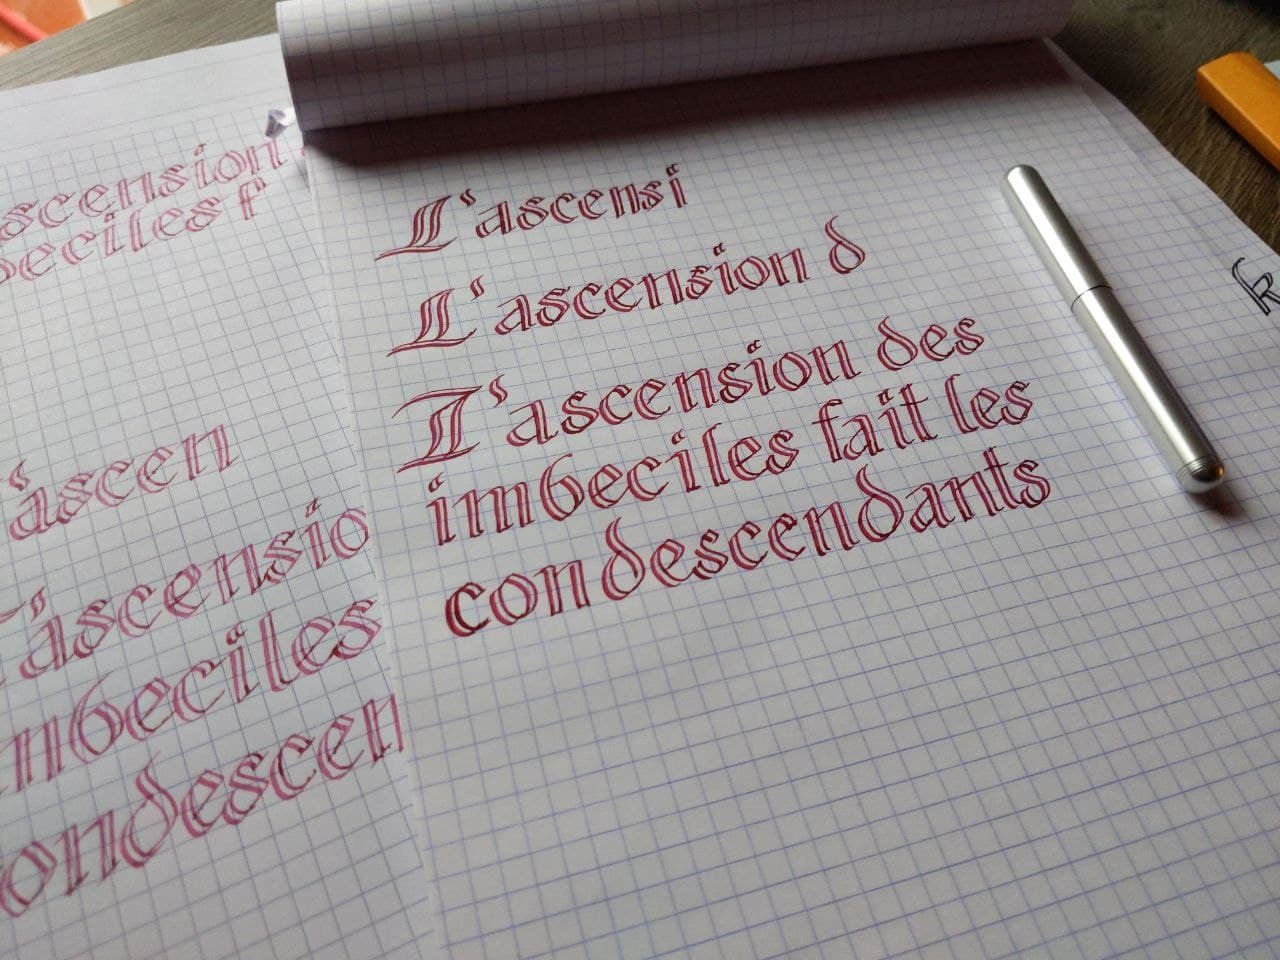 scension
beciles f
'ascen
'ascensio
mbeciles
ondescen
L'ascensi
L'ascension d
L'ascension des
imbeciles fait les
condescendants